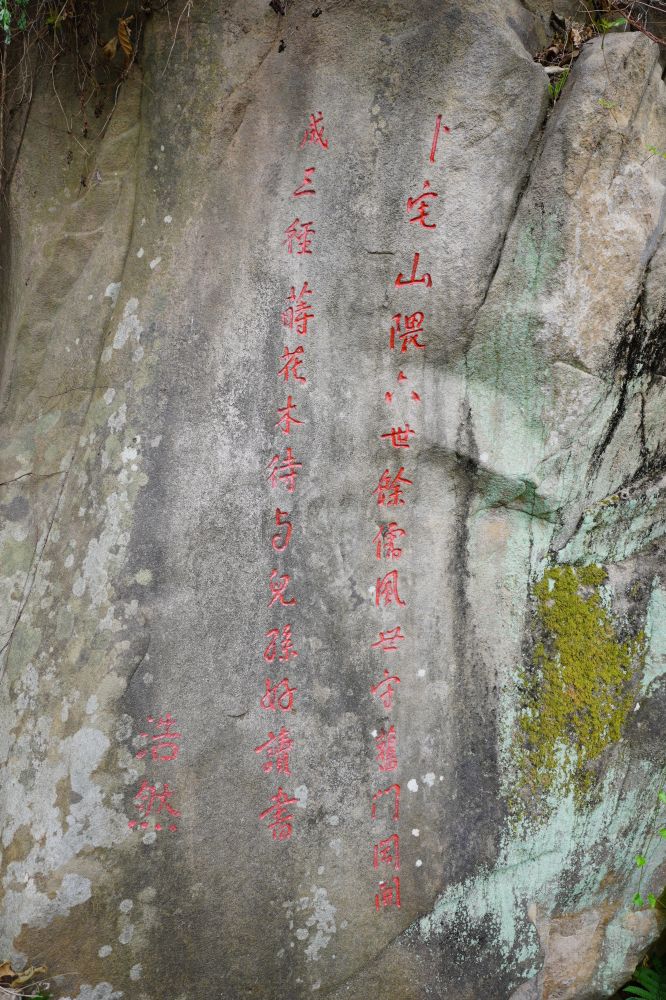 卜宅山隈六世餘儒風世守舊門閭開
成三徑蒔花木待与兒孫好讀書
浩然